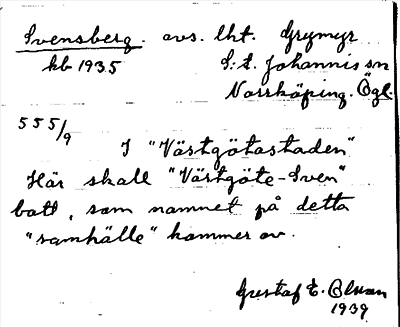 Svensberg. avs. lht. Grymyr
kb 1935 S:t Johannis sn
Norrköping. Ögl.
555/9
I "Västgötastaden"
Här skall "Västgöte-Sven"
bott, som namnet på detta
"samhälle" kommer av.
Gustaf E. Olsson
1939